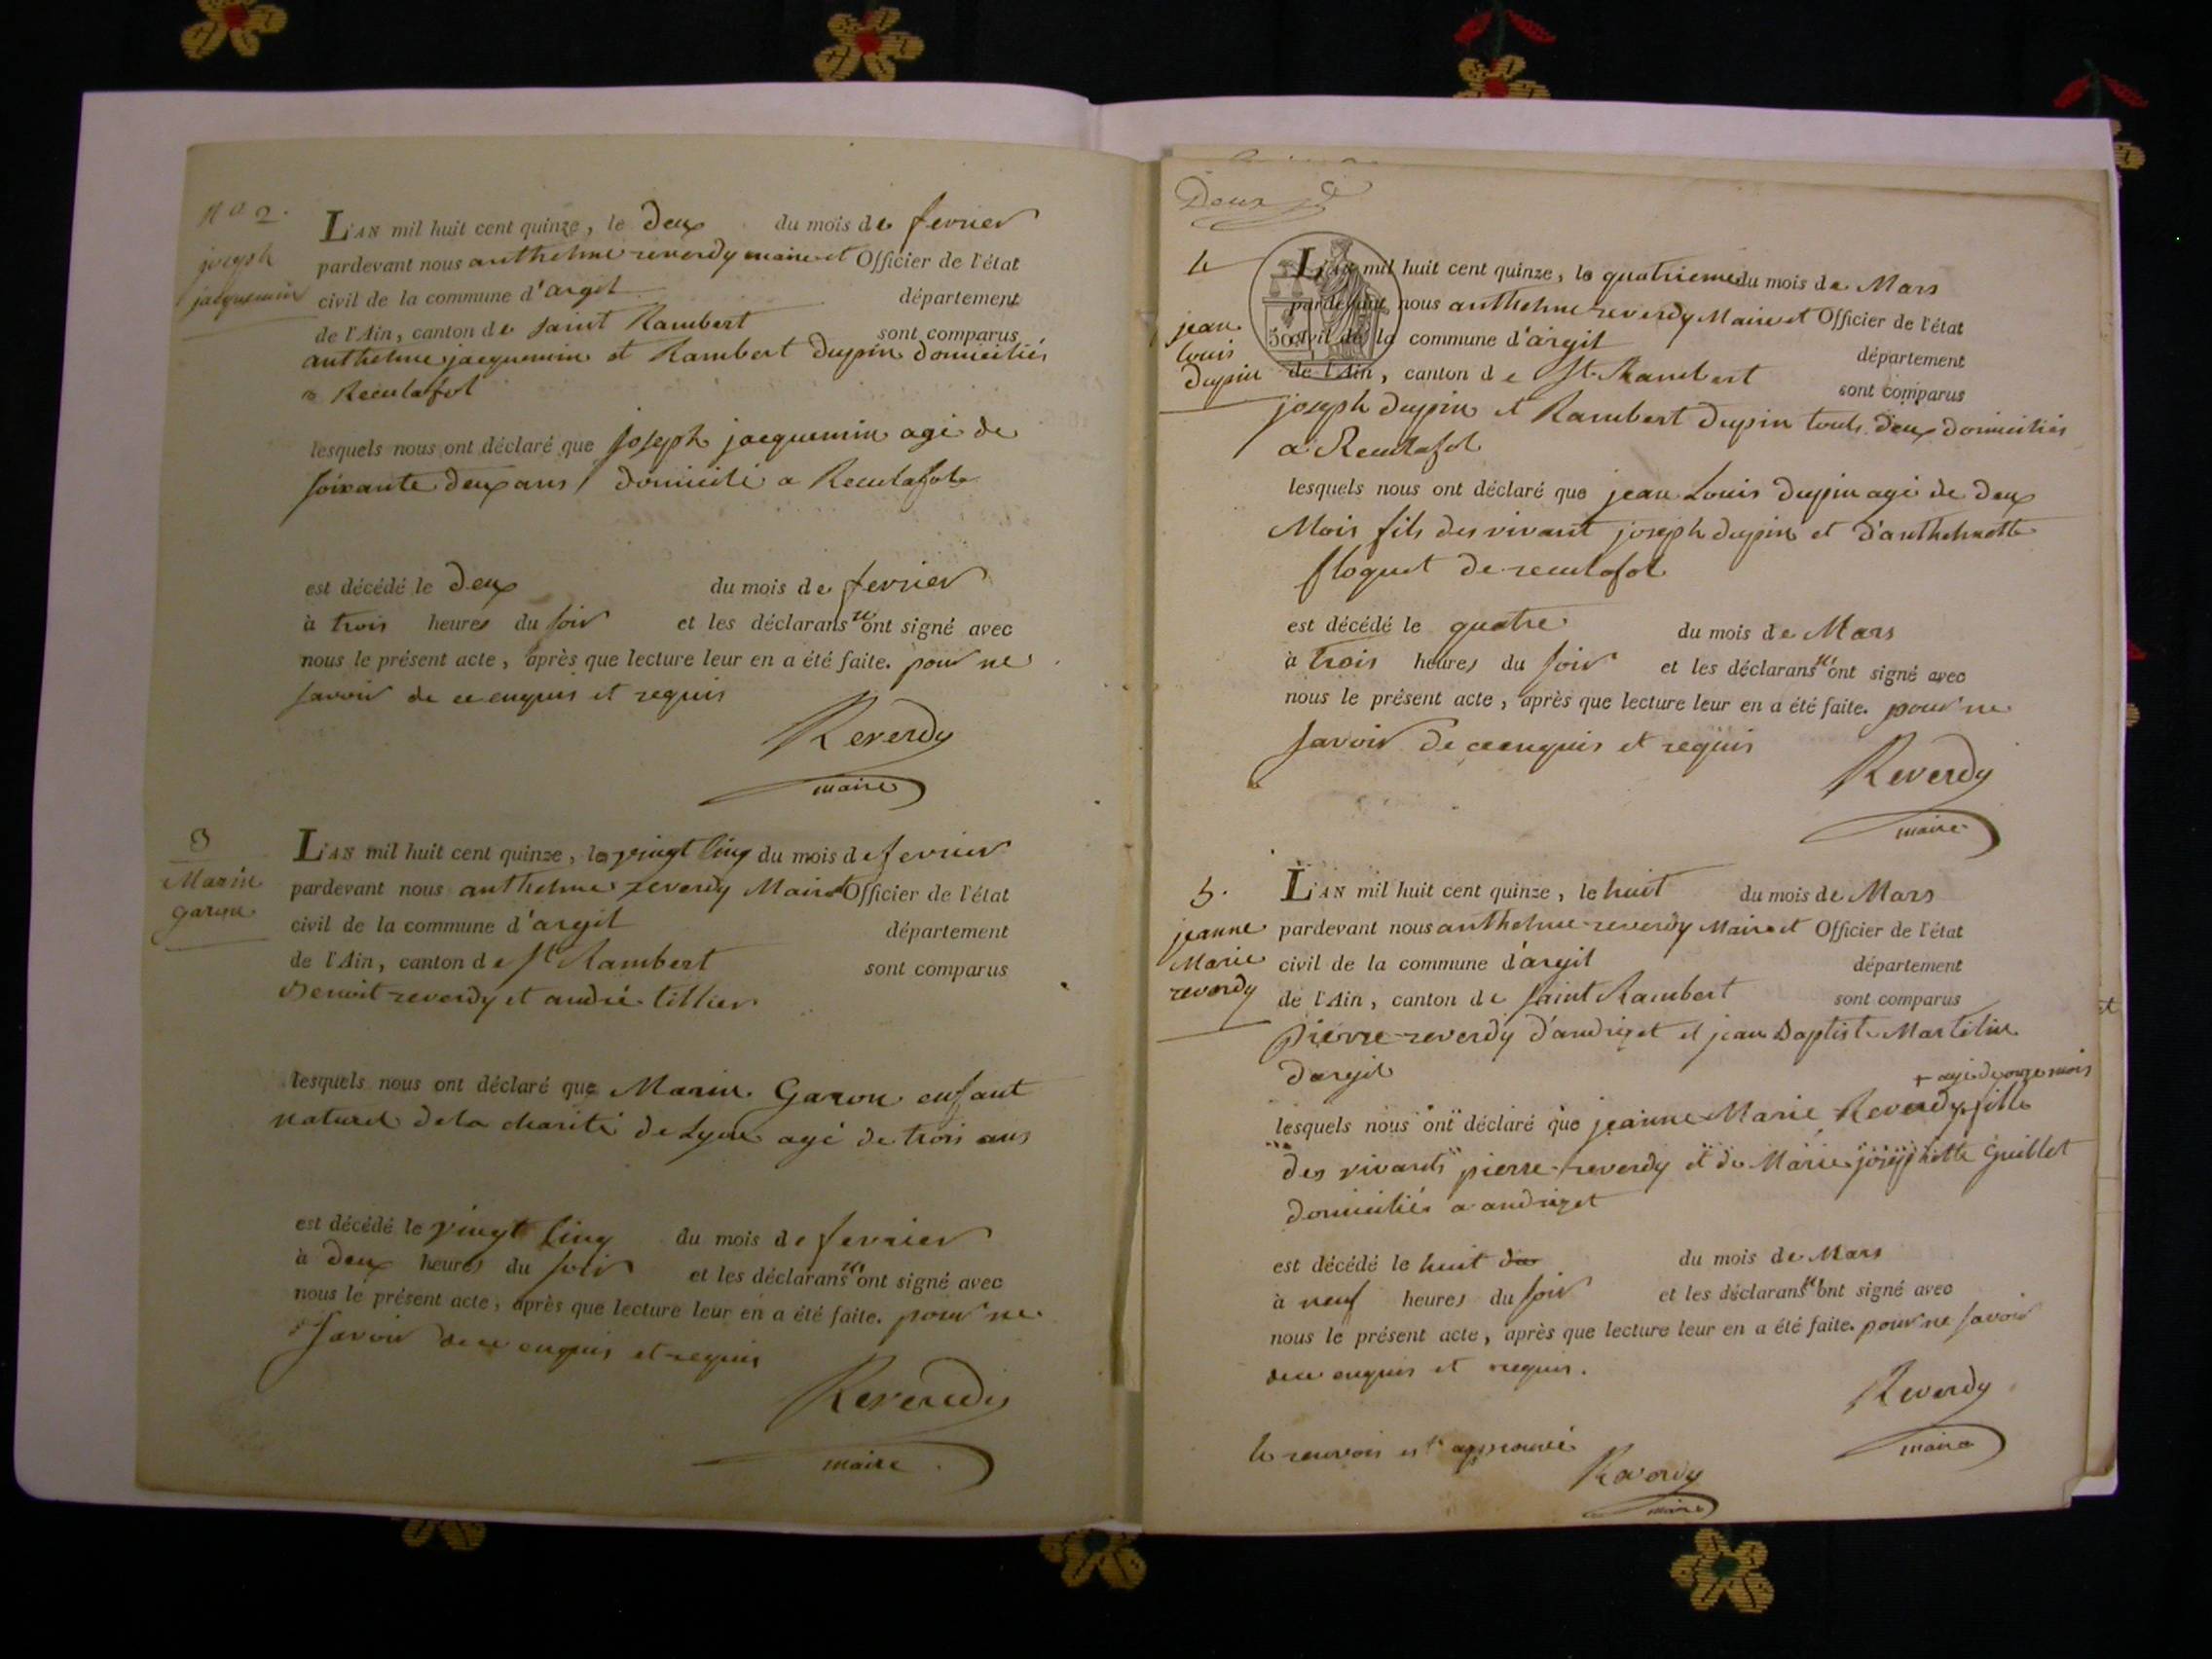 N° 2.
joseph
jacquemin
L'AN mil huit cent quinze, le deux du mois de fevrier
pardevant nous anthelme reverdy maire et Officier de l'état
civil de la commune d'argit
département
de l'Ain, canton de saint Rambert sont comparus
anthelme jacquemin et Rambert dupin domiciliés
a Reculafol
lesquels nous ont déclaré que joseph jacquemin agé de
soixante deux ans domicilié a Reculafol
est décédé le deux du mois de fevrier
à trois heures du soir et les déclarans n'ont signé avec
nous le présent acte, après que lecture leur en a été faite. pour ne
savoir de ce enquis et requis
Reverdy
maire
3
Marin
garon
L'AN mil huit cent quinze, le vingt cinq du mois de fevrier
pardevant nous anthelme reverdy Maire et Officier de l'état
civil de la commune d'argit
département
de l'Ain, canton de St Rambert sont comparus
Benoit reverdy et andré tillier
lesquels nous ont déclaré que Marin Garon enfant
naturel de la charité de Lyon agé de trois ans
est décédé le vingt cinq du mois de fevrier
à deux heures du soir et les déclarans n'ont signé avec
nous le présent acte, après que lecture leur en a été faite. pour ne
savoir de ce enquis et requis
Reverdy
maire
Deux
4
jean
louis
dupin
50
L'AN mil huit cent quinze, le quatrieme du mois de Mars
pardevant nous anthelme reverdy Maire et Officier de l'état
civil de la commune d'argit
département
de l'Ain, canton de St Rambert sont comparus
joseph dupin et Rambert dupin touts deux domiciliés
a Reculafol
lesquels nous ont déclaré que jean Louis dupin agé de deux
Mois fils des vivant joseph dupin et d'anthelmette
floquet de reculafol
est décédé le quatre du mois de Mars
à trois heures du soir et les déclarans n'ont signé avec
nous le présent acte, après que lecture leur en a été faite. pour ne
savoir de ce enquis et requis
Reverdy
maire
5.
jeanne
Marie
reverdy
L'AN mil huit cent quinze, le huit du mois de Mars
pardevant nous anthelme reverdy Maire et Officier de l'état
civil de la commune d'argit
département
de l'Ain, canton de saint Rambert sont comparus
pierre reverdy d'andriget et jean Baptiste Martelin
dargit
+ agé de onze mois
lesquels nous ont déclaré que jeanne Marie Reverdy + fille
des vivants pierre reverdy et de Marie josephette Guillet
domiciliés a andriget
est décédé le huit du mois de Mars
à neuf heures du soir et les déclarans n'ont signé avec
nous le présent acte, après que lecture leur en a été faite. pour ne savoir
de ce enquis et requis.
Reverdy
maire
le renvois est approuvé
Reverdy
maire